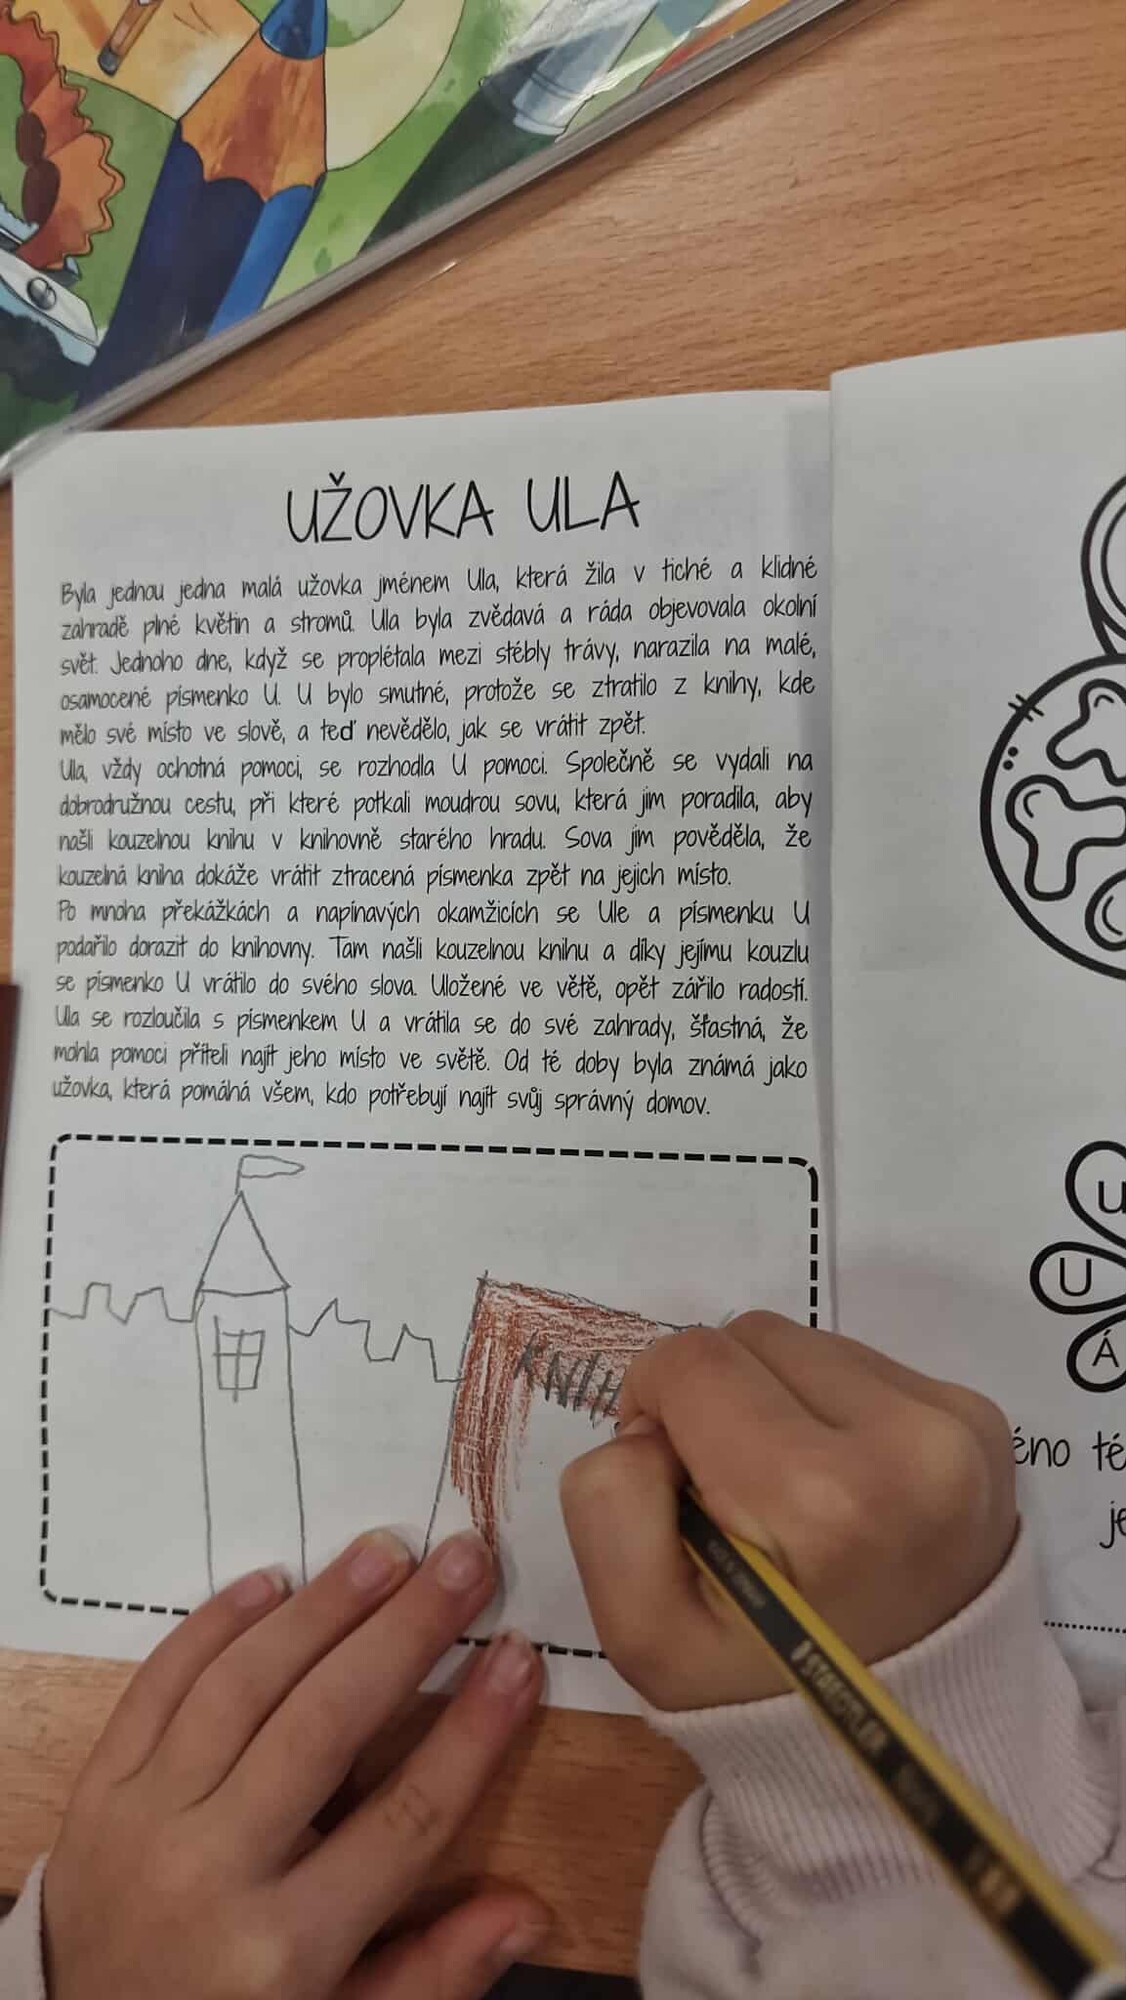 UŽOVKA ULA
Byla jednou jedna malá užovka jménem Ula, která žila v tiché a klidné
zahradě plné květin a stromů. Ula byla zvědavá a ráda objevovala okolní
svět. Jednoho dne, když se proplétala mezi stébly trávy, narazila na malé,
osamocené písmenko U. U bylo smutné, protože se ztratilo z knihy, kde
mělo své místo ve slově, a teď nevědělo, jak se vrátit zpět.
Ula, vždy ochotná pomoci, se rozhodla U pomoci. Společně se vydali na
dobrodružnou cestu, při které potkali moudrou sovu, která jim poradila, aby
našli kouzelnou knihu v knihovně starého hradu. Sova jim pověděla, že
kouzelná kniha dokáže vrátit ztracená písmenka zpět na jejich místo.
Po mnoha překážkách a napínavých okamžicích se Ule a písmenku U
podařilo dorazit do knihovny. Tam našli kouzelnou knihu a díky jejímu kouzlu
se písmenko U vrátilo do svého slova. Uložené ve větě, opět zářilo radostí.
Ula se rozloučila s písmenkem U a vrátila se do své zahrady, šťastná, že
mohla pomoci příteli najít jeho místo ve světě. Od té doby byla známá jako
užovka, která pomáhá všem, kdo potřebují najít svůj správný domov.
KNIH
u
U
Á
éno té
je
STAEDTLER